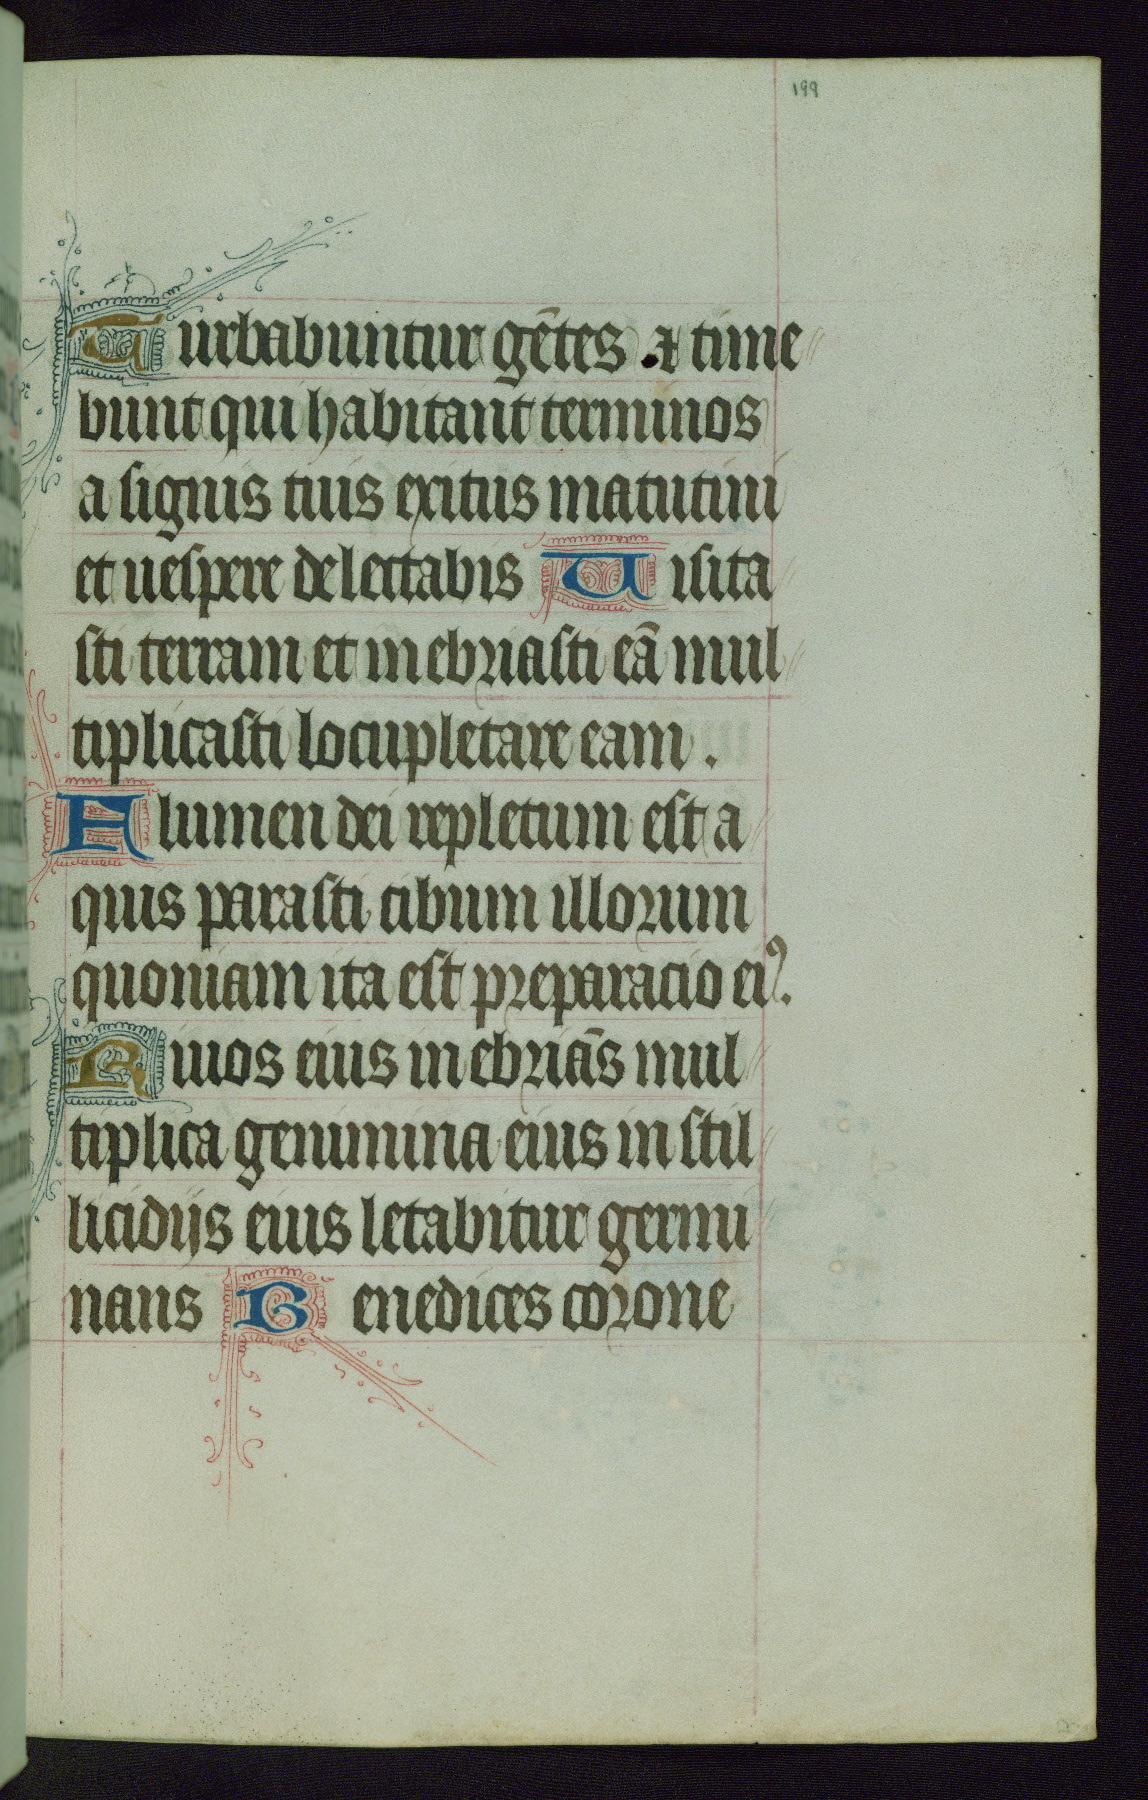 199
Turbabuntur gētes ⁊ time
bunt qui habitant terminos
a signis tuis exitus matutini
et uespere delectabis Uisita
sti terram et inebriasti eā mul
tiplicasti locupletare eam .
Flumen dei repletum est a
quis parasti cibum illorum
quoniam ita est preparacio eiꝰ.
Riuos eius inebriās mul
tiplica genimina eius in stil
licidijs eius letabitur germi
nans Benedices corone